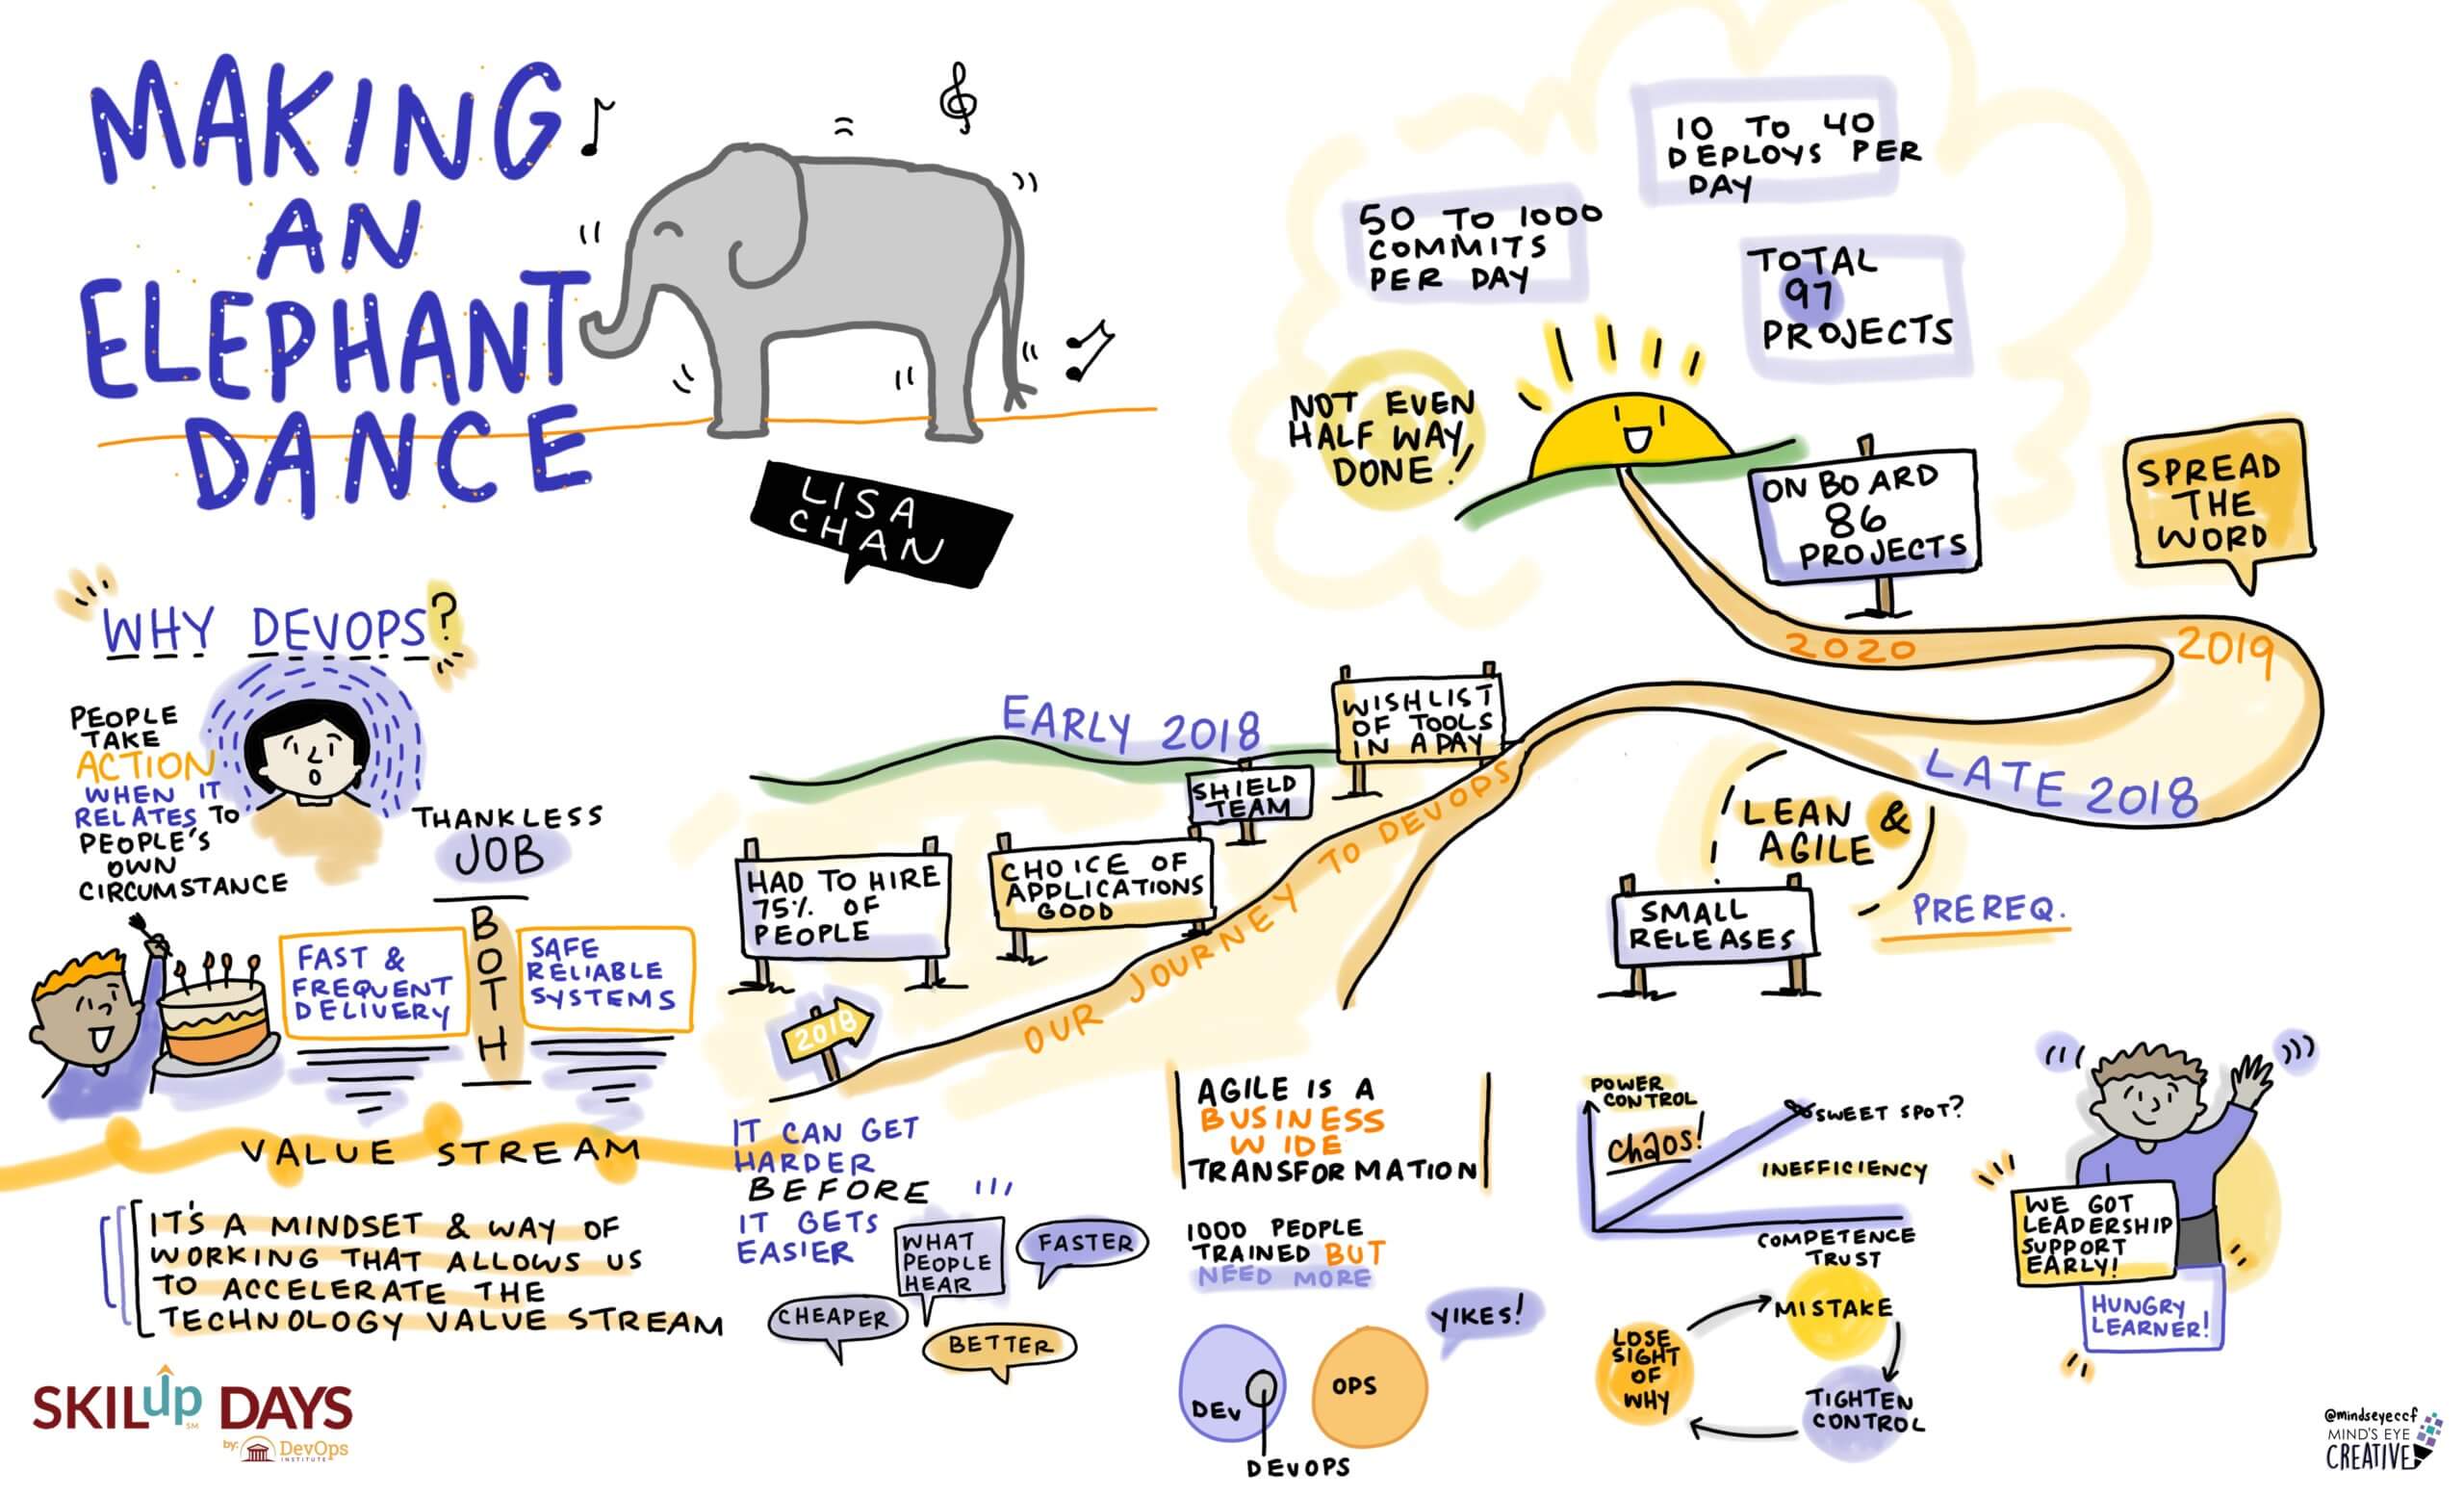 MAKING
AN
ELEPHANT
DANCE
LISA
CHAN
WHY DEVOPS?
PEOPLE
TAKE
ACTION
WHEN IT
RELATES TO
PEOPLE'S
OWN
CIRCUMSTANCE
THANKLESS
JOB
FAST &
FREQUENT
DELIVERY
BOTH
SAFE
RELIABLE
SYSTEMS
VALUE STREAM
IT'S A MINDSET & WAY OF
WORKING THAT ALLOWS US
TO ACCELERATE THE
TECHNOLOGY VALUE STREAM
SKILup DAYS
SM
by: DevOps
INSTITUTE
EARLY 2018
HAD TO HIRE
75% OF
PEOPLE
CHOICE OF
APPLICATIONS
GOOD
SHIELD
TEAM
WISHLIST
OF TOOLS
IN A DAY
2018
OUR JOURNEY TO DEVOPS
LATE 2018
2019
2020
LEAN &
AGILE
PREREQ.
SMALL
RELEASES
SPREAD
THE
WORD
ON BOARD
86
PROJECTS
NOT EVEN
HALF WAY
DONE!
50 TO 1000
COMMITS
PER DAY
10 TO 40
DEPLOYS PER
DAY
TOTAL
97
PROJECTS
IT CAN GET
HARDER
BEFORE
IT GETS
EASIER
WHAT
PEOPLE
HEAR
FASTER
CHEAPER
BETTER
AGILE IS A
BUSINESS
WIDE
TRANSFORMATION
1000 PEOPLE
TRAINED BUT
NEED MORE
YIKES!
DEV
OPS
DEVOPS
POWER
CONTROL
CHAOS!
SWEET SPOT?
INEFFICIENCY
COMPETENCE
TRUST
MISTAKE
TIGHTEN
CONTROL
LOSE
SIGHT
OF
WHY
WE GOT
LEADERSHIP
SUPPORT
EARLY!
HUNGRY
LEARNER!
@mindseyeccf
MIND'S EYE
CREATIVE